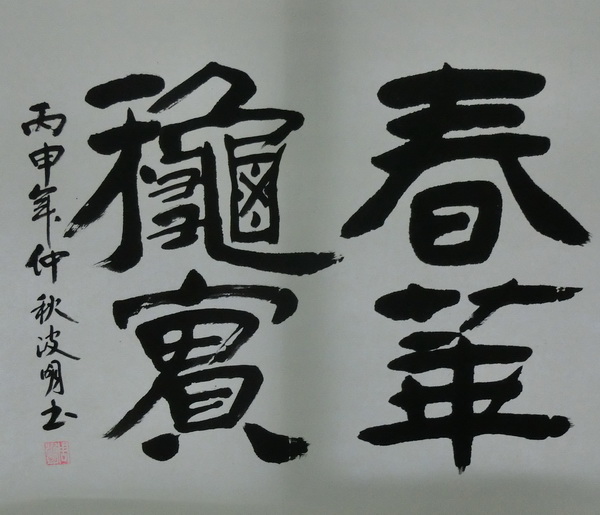 春華
龝實
丙申年仲秋波明书